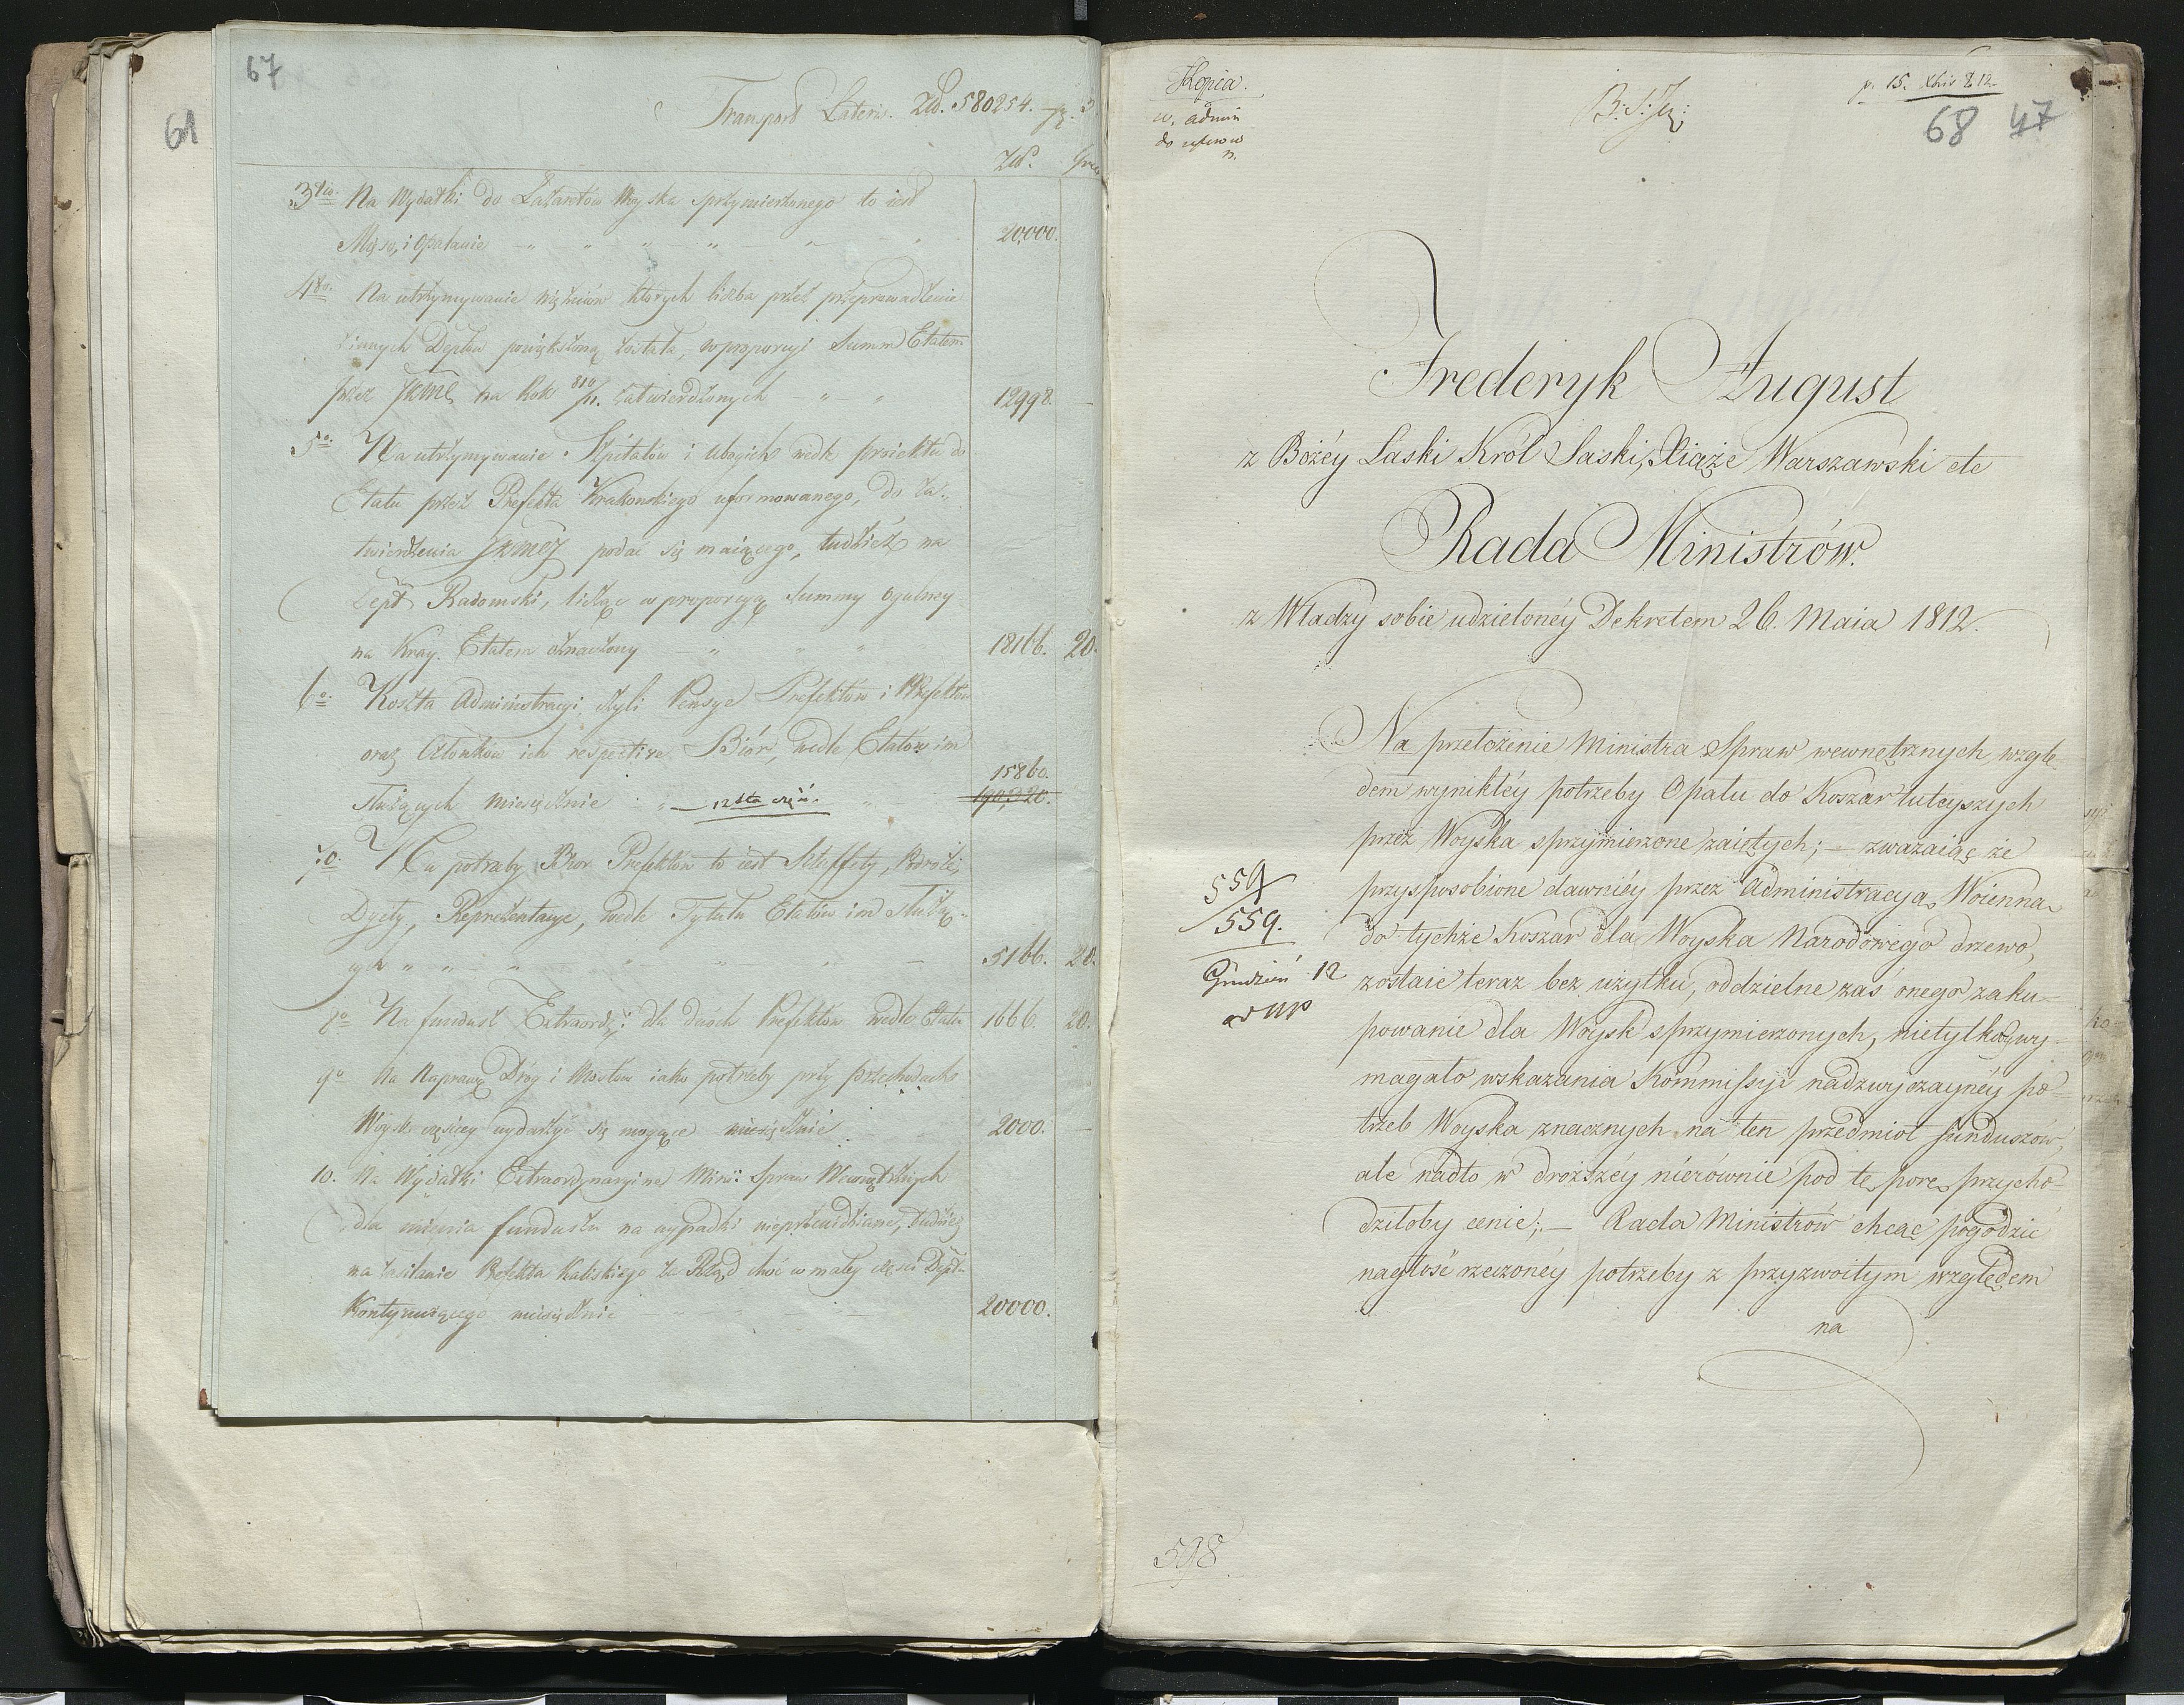 61
67
Transport Lateris. Zł. 580254. gr. 3
Zł. Gro
3tio. Na Wydatki do Lazaretów Woyska sprzymierzonego to iest
Mięso, i Opalanie - " - " " " - " " 20,000.
4to. Na utrzymywanie więźniów których liczba przez przeprowadzenie
z innych Deptów powiększoną została, w proporcyi Summ Etatem
przez JKMć na Rok 810/11. zatwierdzonych - " - " 12998. -
5o. Na utrzymywanie Szpitalów i Ubogich wedle proiektu do
Etatu przez Prefekta Krakowskiego uformowanego, do za-
twierdzenia JKMci podać się maiącego, tudzież na
Dept Radomski, licząc w proporcyą Summy ogulney
na Kray Etatem oznaczony " " " 18166. 20.
6o. Koszta Administracyi czyli Pensye Prefektów i PPrefektów
oraz Członków ich respective Biór, wedle Etatów im
służących miesięcznie " — 12sta część. " 15860.
190,320.
7o. Na potrzeby Biór Prefektów to iest Sztaffety, Podróże,
Dyety, Reprezentacye, wedle Tytułu Etatów im służą-
cych " " " " " " — 5166. 20.
8o Na fundusz Extraordy: dla dwóch Prefektów wedle Etatu 1666. 20.
9o Na Naprawę Dróg i Mostów iako potrzeby przy przechodach
Woysk częściey wydarzyć się mogące miesięcznie 2000. —
10. Na Wydatki Extraordynaryine Mini: Spraw Wewnętrznych
dla mienia funduszu na wypadki nieprzewidziane, tudzież
na zasilanie Prefekta Kaliskiego za Rząd choć w małey części Dept-
Kontynuiącego miesięcznie — 20000.
Kopia.
w. admin
B: S: Jg:
p. 15. Xbris 812.
68 47
Frederyk August
z Bożéy Łaski Król Saski, Xiąże Warszawski etc
Rada Ministrów.
z Władzy sobie udzielonéy Dekretem 26. Maia 1812.
Na przełożenie Ministra Spraw wewnętrznych, wzglę-
dem wynikłéy potrzeby Opału do Koszar tuteyszych
przez Woyska sprzymierzone zaiętych; — zważaiąc że
przysposobione dawniéy przez Administracyą Woienną
do tychże Koszar dla Woyska Narodowego drzewo,
zostaie teraz bez użytku, oddzielne zaś onego zaku-
powanie dla Woysk sprzymierzonych, nietylkoby wy-
magało wskazania Kommissyi nadzwyczaynéy po-
trzeb Woyska znacznych na ten przedmiot funduszów,
ale nadto w droższéy nierównie pod tę porę przycho-
dziłoby cenie; — Rada Ministrów chcąc pogodzić
nagłość rzeczonéy potrzeby z przyzwoitym względem
na
559
559.
Grudzień 12
598.